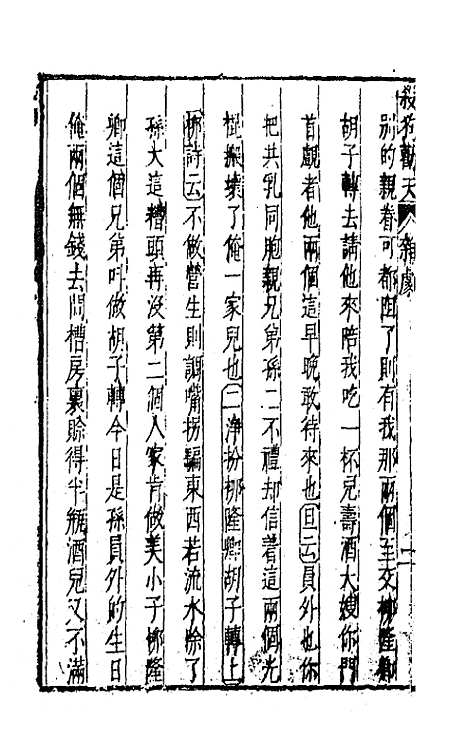 殺狗勸夫 雜劇
別的親眷可都回了則有我那兩個至交柳隆卿
胡子轉去請他來陪我吃一杯兒壽酒大嫂你門
首覷者他兩個這早晚敢待來也旦云員外也你
把共乳同胞親兄弟孫二不禮却信着這兩個光
棍搬壞了俺一家兒也二淨扮柳隆卿胡子轉上
柳詩云不做營生則調嘴拐騙東西若流水除了
孫大這糟頭再沒第二個人家肯做美小子柳隆
卿這個兄弟叫做胡子轉今日是孫員外的生日
俺兩個無錢去問槽房裏賒得半瓶酒兒又不滿